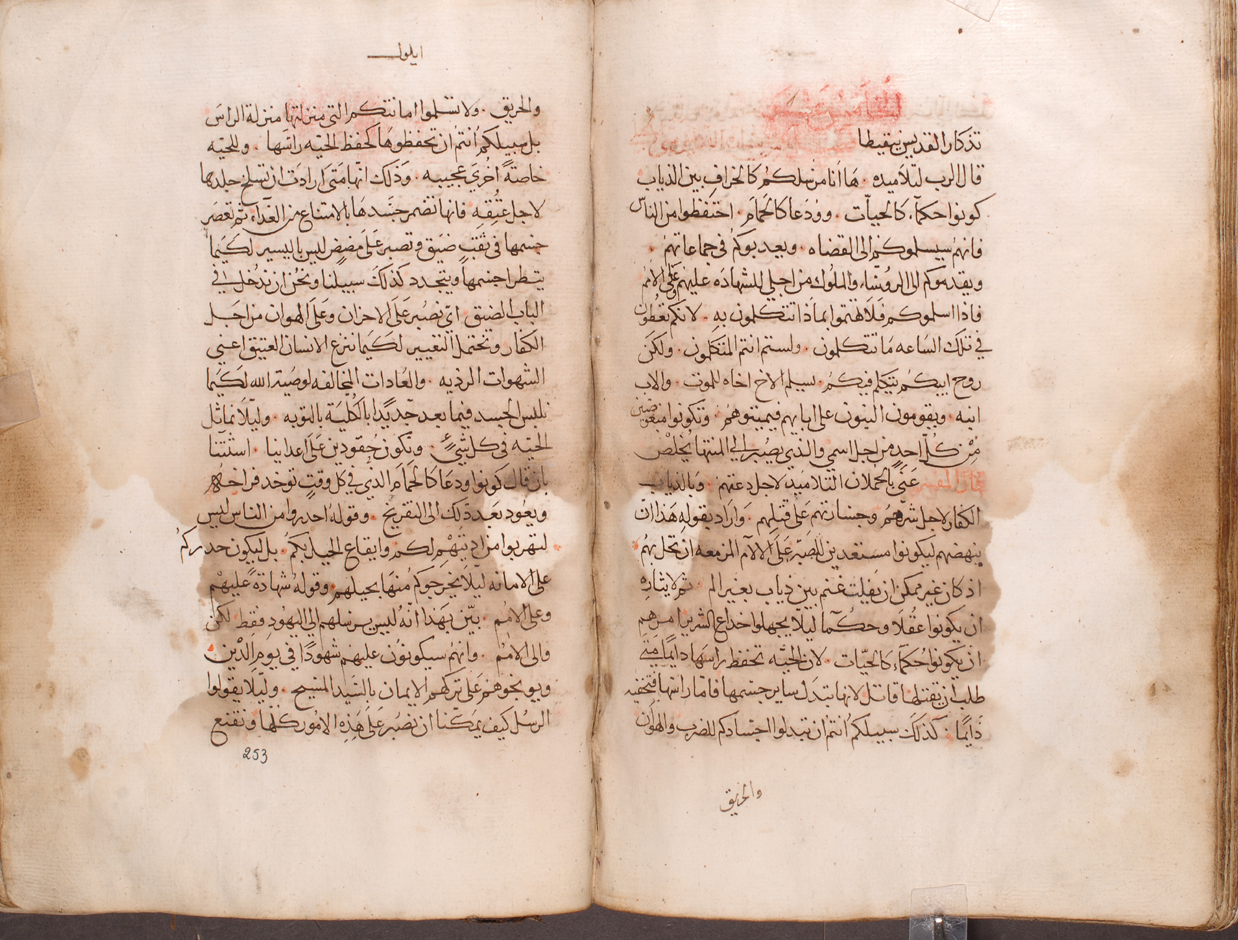 تذكار القديس نيقيطا
قال الرب لتلاميذه . ها انا مرسلكم كالخراف بين الذياب
كونوا حكمآء كالحيات . وودعا كالحمام . احتفظوا من الناس
فانهم سيسلموكم الى القضاه . ويعذبوكم في جماعاتهم .
ويقدموكم الى الروسآء والملوك من اجلي للشهادة عليهم وعلى الامم
فاذا اسلموكم فلا تهتموا بماذا تتكلمون به . لانكم تعطون
في تلك الساعه ما تتكلمون . ولستم انتم المتكلمون . ولكن
روح ابيكم يتكلم فيكم . سيسلم الاخ اخاه للموت . والاب
ابنه . ويقومون البنون على ابايهم فيميتوهم . وتكونوا مبغوضين
من كل احد من اجل اسمي والذي يصبر الى المنتها يخلص
عنى بالحملان التلاميذ لاجل دعتهم . وبالذياب
الكفار لاجل شرهم وجسارتهم على قتلهم . واراد بقوله هذا ان
ينهضهم ليكونوا مستعدين للصبر على الالام المزمعه ان تحل بهم
اذ كان غير ممكن ان يفلت غنم بين ذياب بغير الم . ثم لايثاره
ان يكونوا عقلا وحكما ليلا يجهلوا خداع الشريرا امرهم
ان يكونوا حكمآء كالحيات . لان الحية تحفظ راسها دايما متى
طلب ان يقتلها قاتل لانها تبدل ساير جسمها فاما راسها فتخفيه
دايما . كذلك سبيلكم انتم ان تبدلوا اجسادكم للضرب والهوان
والحريق
ايلول
والحريق . ولا تسلموا امانتكم التي منزلتها منزلة الراس
بل سبيلكم انتم ان تحفظوها كحفظ الحيه راسها . وللحيه
خاصة اخرى عجيبه . وذلك انها متى ارادت ان تسلخ جلدها
لاجل عتقه فانها تضمر جسدها بالامتناع من الغذآء ثم تعصر
جسمها في ثقب ضيق وتصبر على مضض ليس باليسير لكيما
يتطرا جسمها ويتجدد كذلك سبيلنا ونحن ان ندخل في
الباب الضيق اي نصبر على الاحزان وعلى الهوان من اجل
الكفار ونحتمل التعيير لكيما ننزع الانسان العتيق اعني
الشهوات الرذيه . والعادات المخالفه لوصية الله لكيما
نلبس الجسد فيما بعد جديدا بالكلية بالتوبه . وليلا نماثل
الحيه في كل شيء . ونكون حقودين على اعداينا . استثنا
بان قال كونوا ودعا كالحمام الذي في كل وقت توخد فراخه
ويعود بعد ذلك الى التفريخ . وقوله احذروا من الناس ليس
لتهربوا من اذيتهم لكم وايقاع الحيل بكم . بل ليكون حذركم
على الامانه ليلا يخرجوكم منها بحيلهم . وقوله شهادة عليهم
وعلى الامم . بين بهذا انه ليس يرسلهم الى اليهود فقط لكن
والى الامم . وانهم سيكونون عليهم شهودا في يوم الدين
ويوبخوهم على تركهم الايمان بالسيد المسيح . وليلا يقولوا
الرسل كيف يمكننا ان نصبر على هذه الامور كلها ونقنع
253